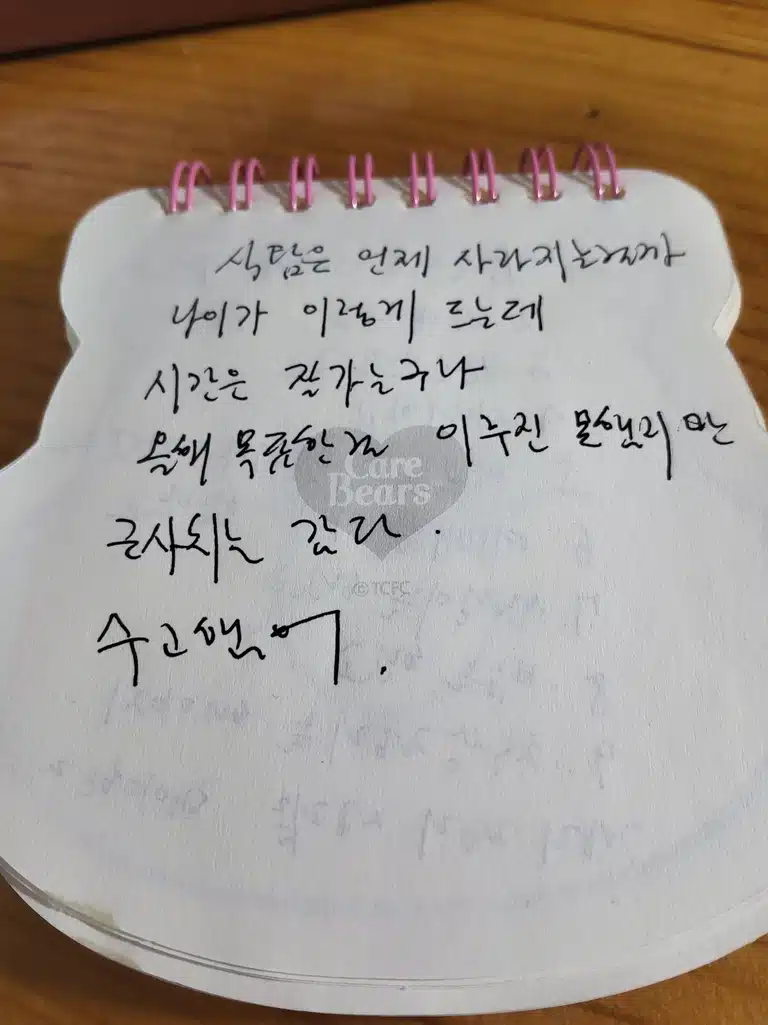 식탐은 언제 사라지는걸까
나이가 이렇게 드는데
시간은 잘가는구나
올해 목표한걸 이루진 못했지만
근사치는 갔다.
수고했어.
Care
Bears
©TCFC